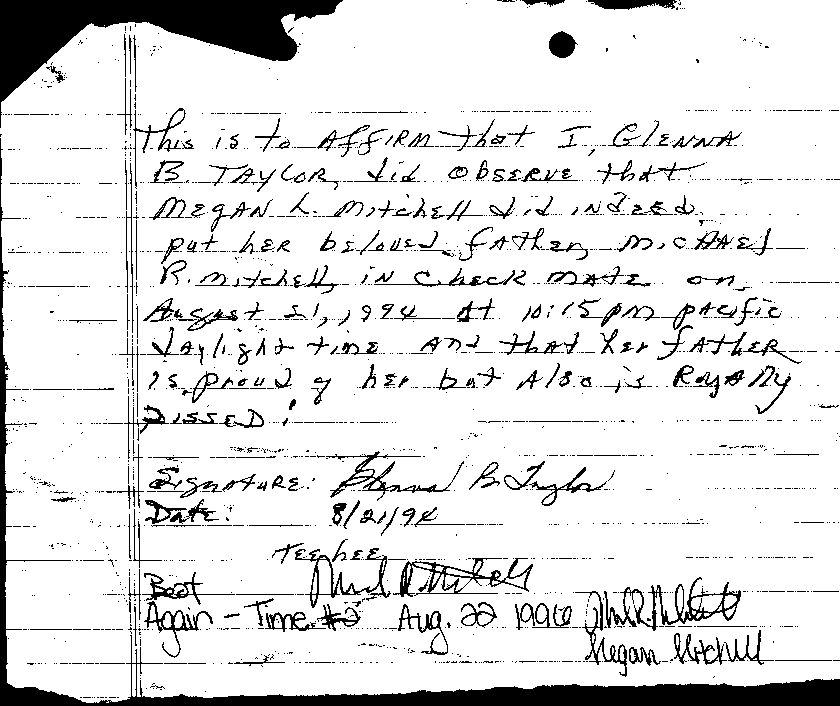 This is to AFFIRM that I, GLENNA
B. TAYLOR, did OBSERVE that
MEGAN L. Mitchell did indeed
put her beloved father, MICHAEL
R. Mitchell, in check mate on
August 21, 1994 At 10:15 pm pacific
daylight time and that her FATHER
is proud of her but Also is Royally
PISSED!
Signature: Glenna B Taylor
Date: 8/21/94
Tee hee
Beat
Again - Time #2 Aug. 22 1996
Megan Mitchell